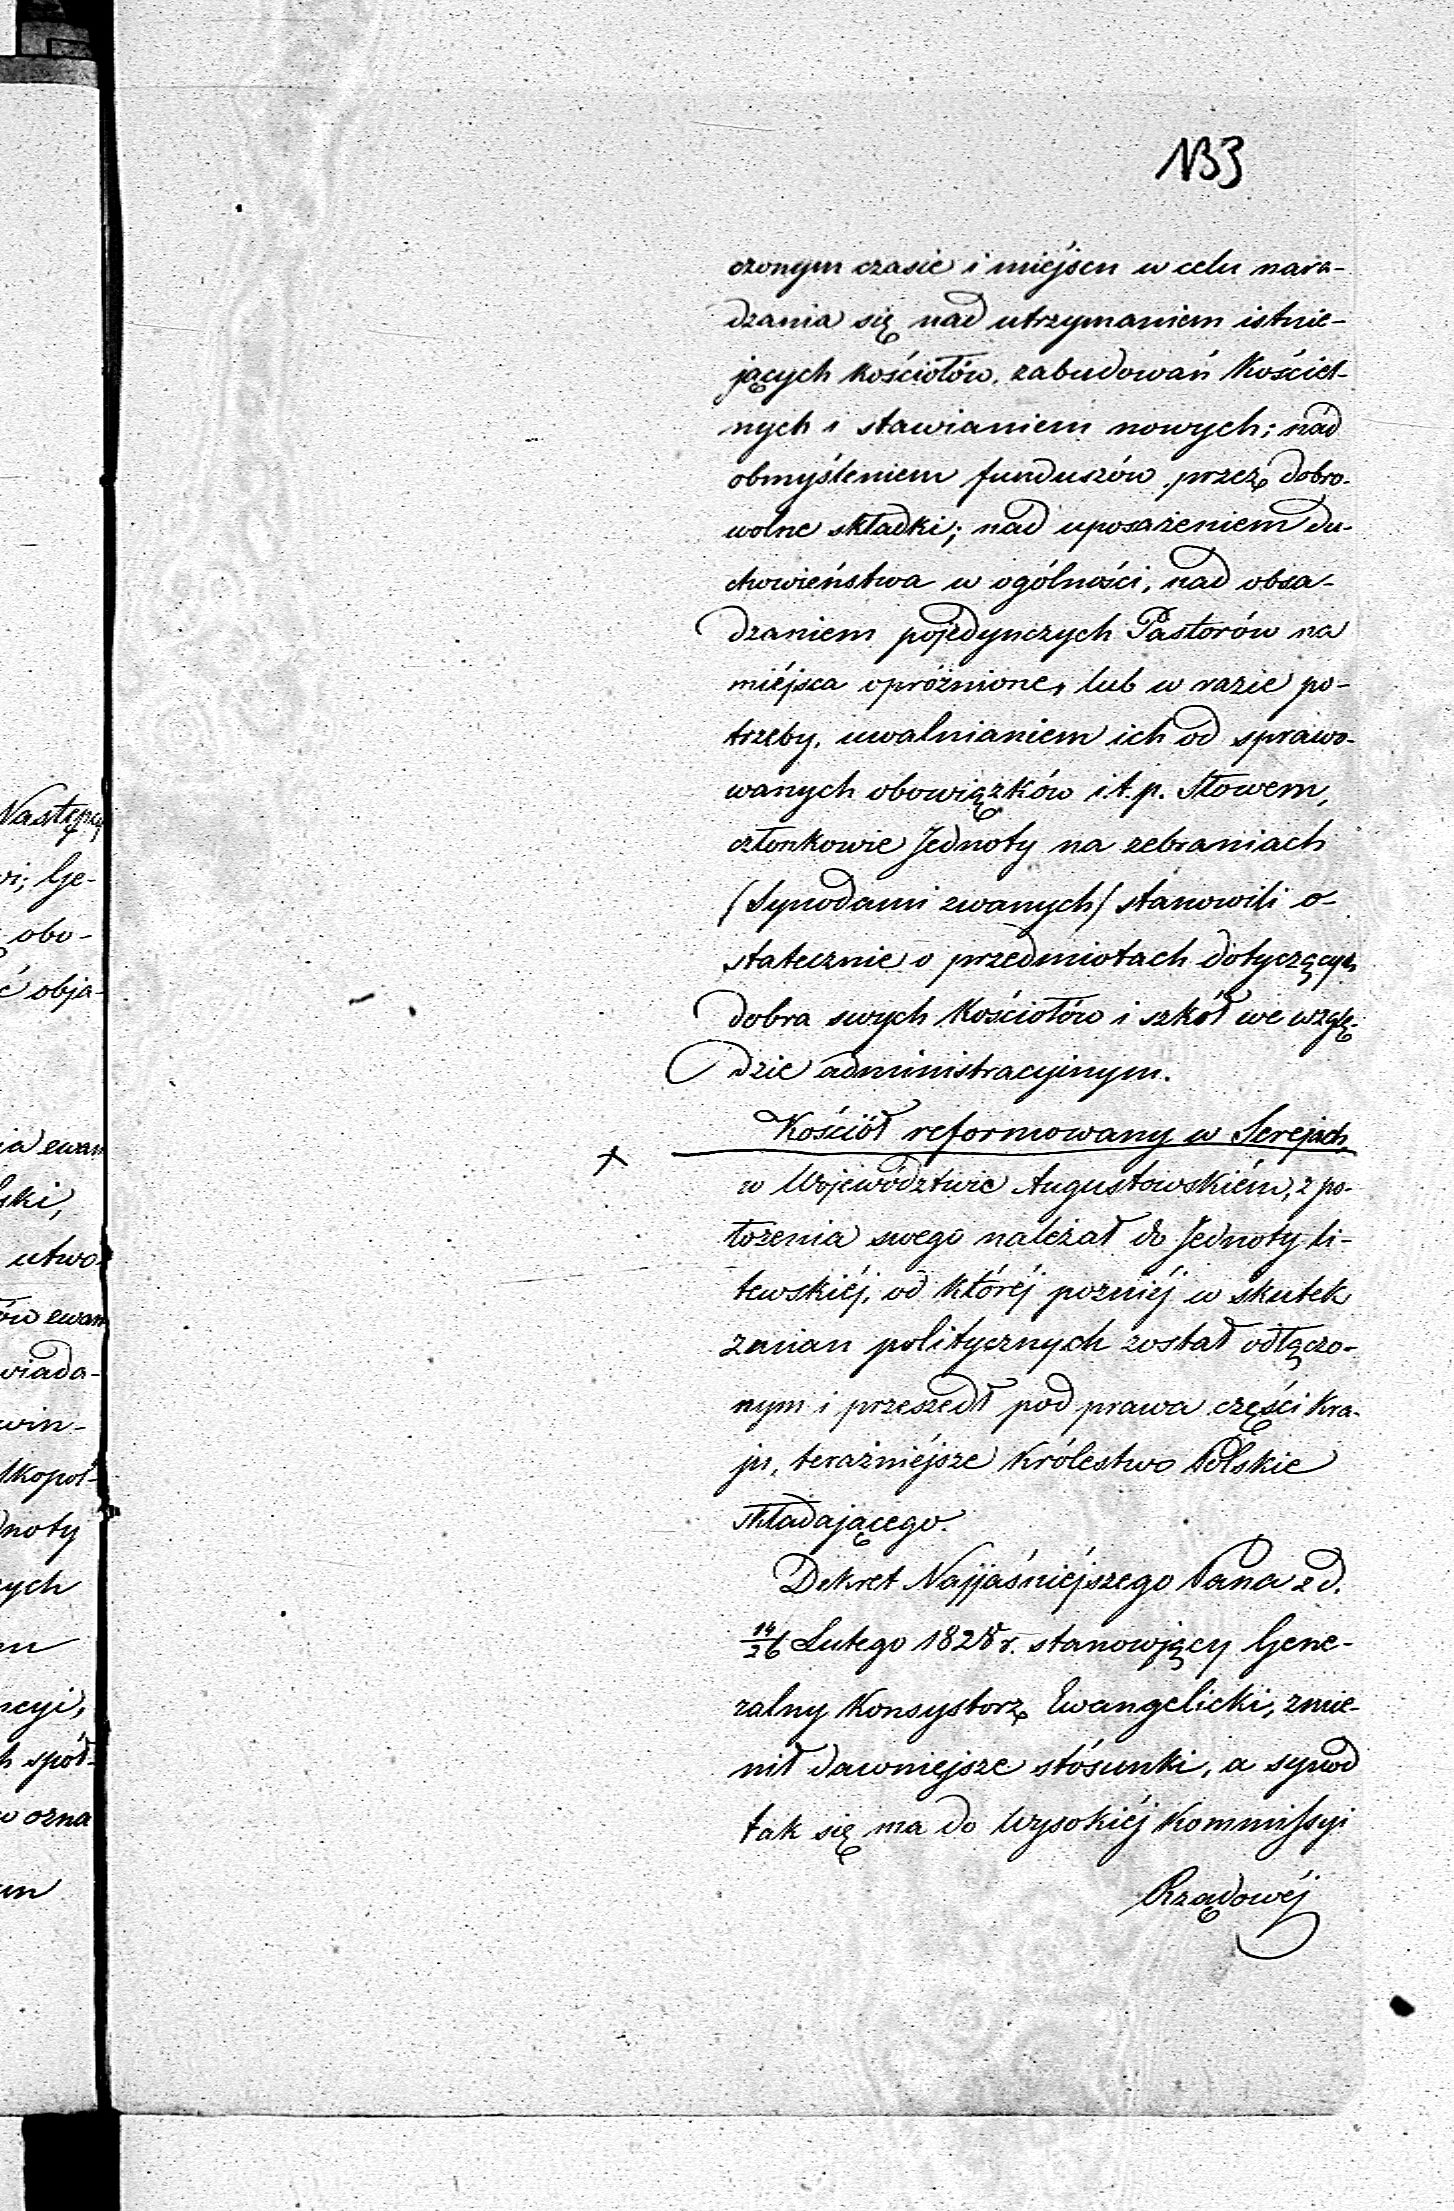 133
czonym czasie i miéjscu w celu nara-
dzania się nad utrzymaniem istnie-
jących kościołów, zabudowań Kościel-
nych i stawianiem nowych; nad
obmyśleniem funduszów przez dobro-
wolne składki; nad uposażeniem du-
chowieństwa w ogólności, nad obsa-
dzaniem pojedynczych Pastorów na
miéjsca opróżnione, lub w razie po-
trzeby, uwalnianiem ich od sprawo-
wanych obowiązków i t. p. Słowem,
członkowie Jednoty na zebraniach
(Synodami zwanych) stanowili o-
statecznie o przedmiotach dotyczących
dobra swych Kościołów i szkół we wzglę-
dzie administracyjnym.
Kościół reformowany w Serejach,
w Województwie Augustowskiém, z po-
łożenia swego należał do Jednoty li-
tewskiéj, od któréj pozniéj w skutek
zmian politycznych został odłączo-
nym i przeszedł pod prawa części kra-
ju, teraźniéjsze Królestwo Polskie
składającego.
Dekret Najjaśniéjszego Pana z d.
14/26 Lutego 1828 r. stanowiący Gene-
ralny Konsystorz Ewangelicki, zmie-
nił dawniejsze stósunki, a synod
tak się ma do Wysokiéj Kommissyi
Rządowéj
Następcy
wi; Ge-
obo-
ć obja-
ia ewan
ski,
utwo-
ów ewan
wiada-
win-
lkopol-
dnoty
ych
ncyi,
h spół-
w ozna